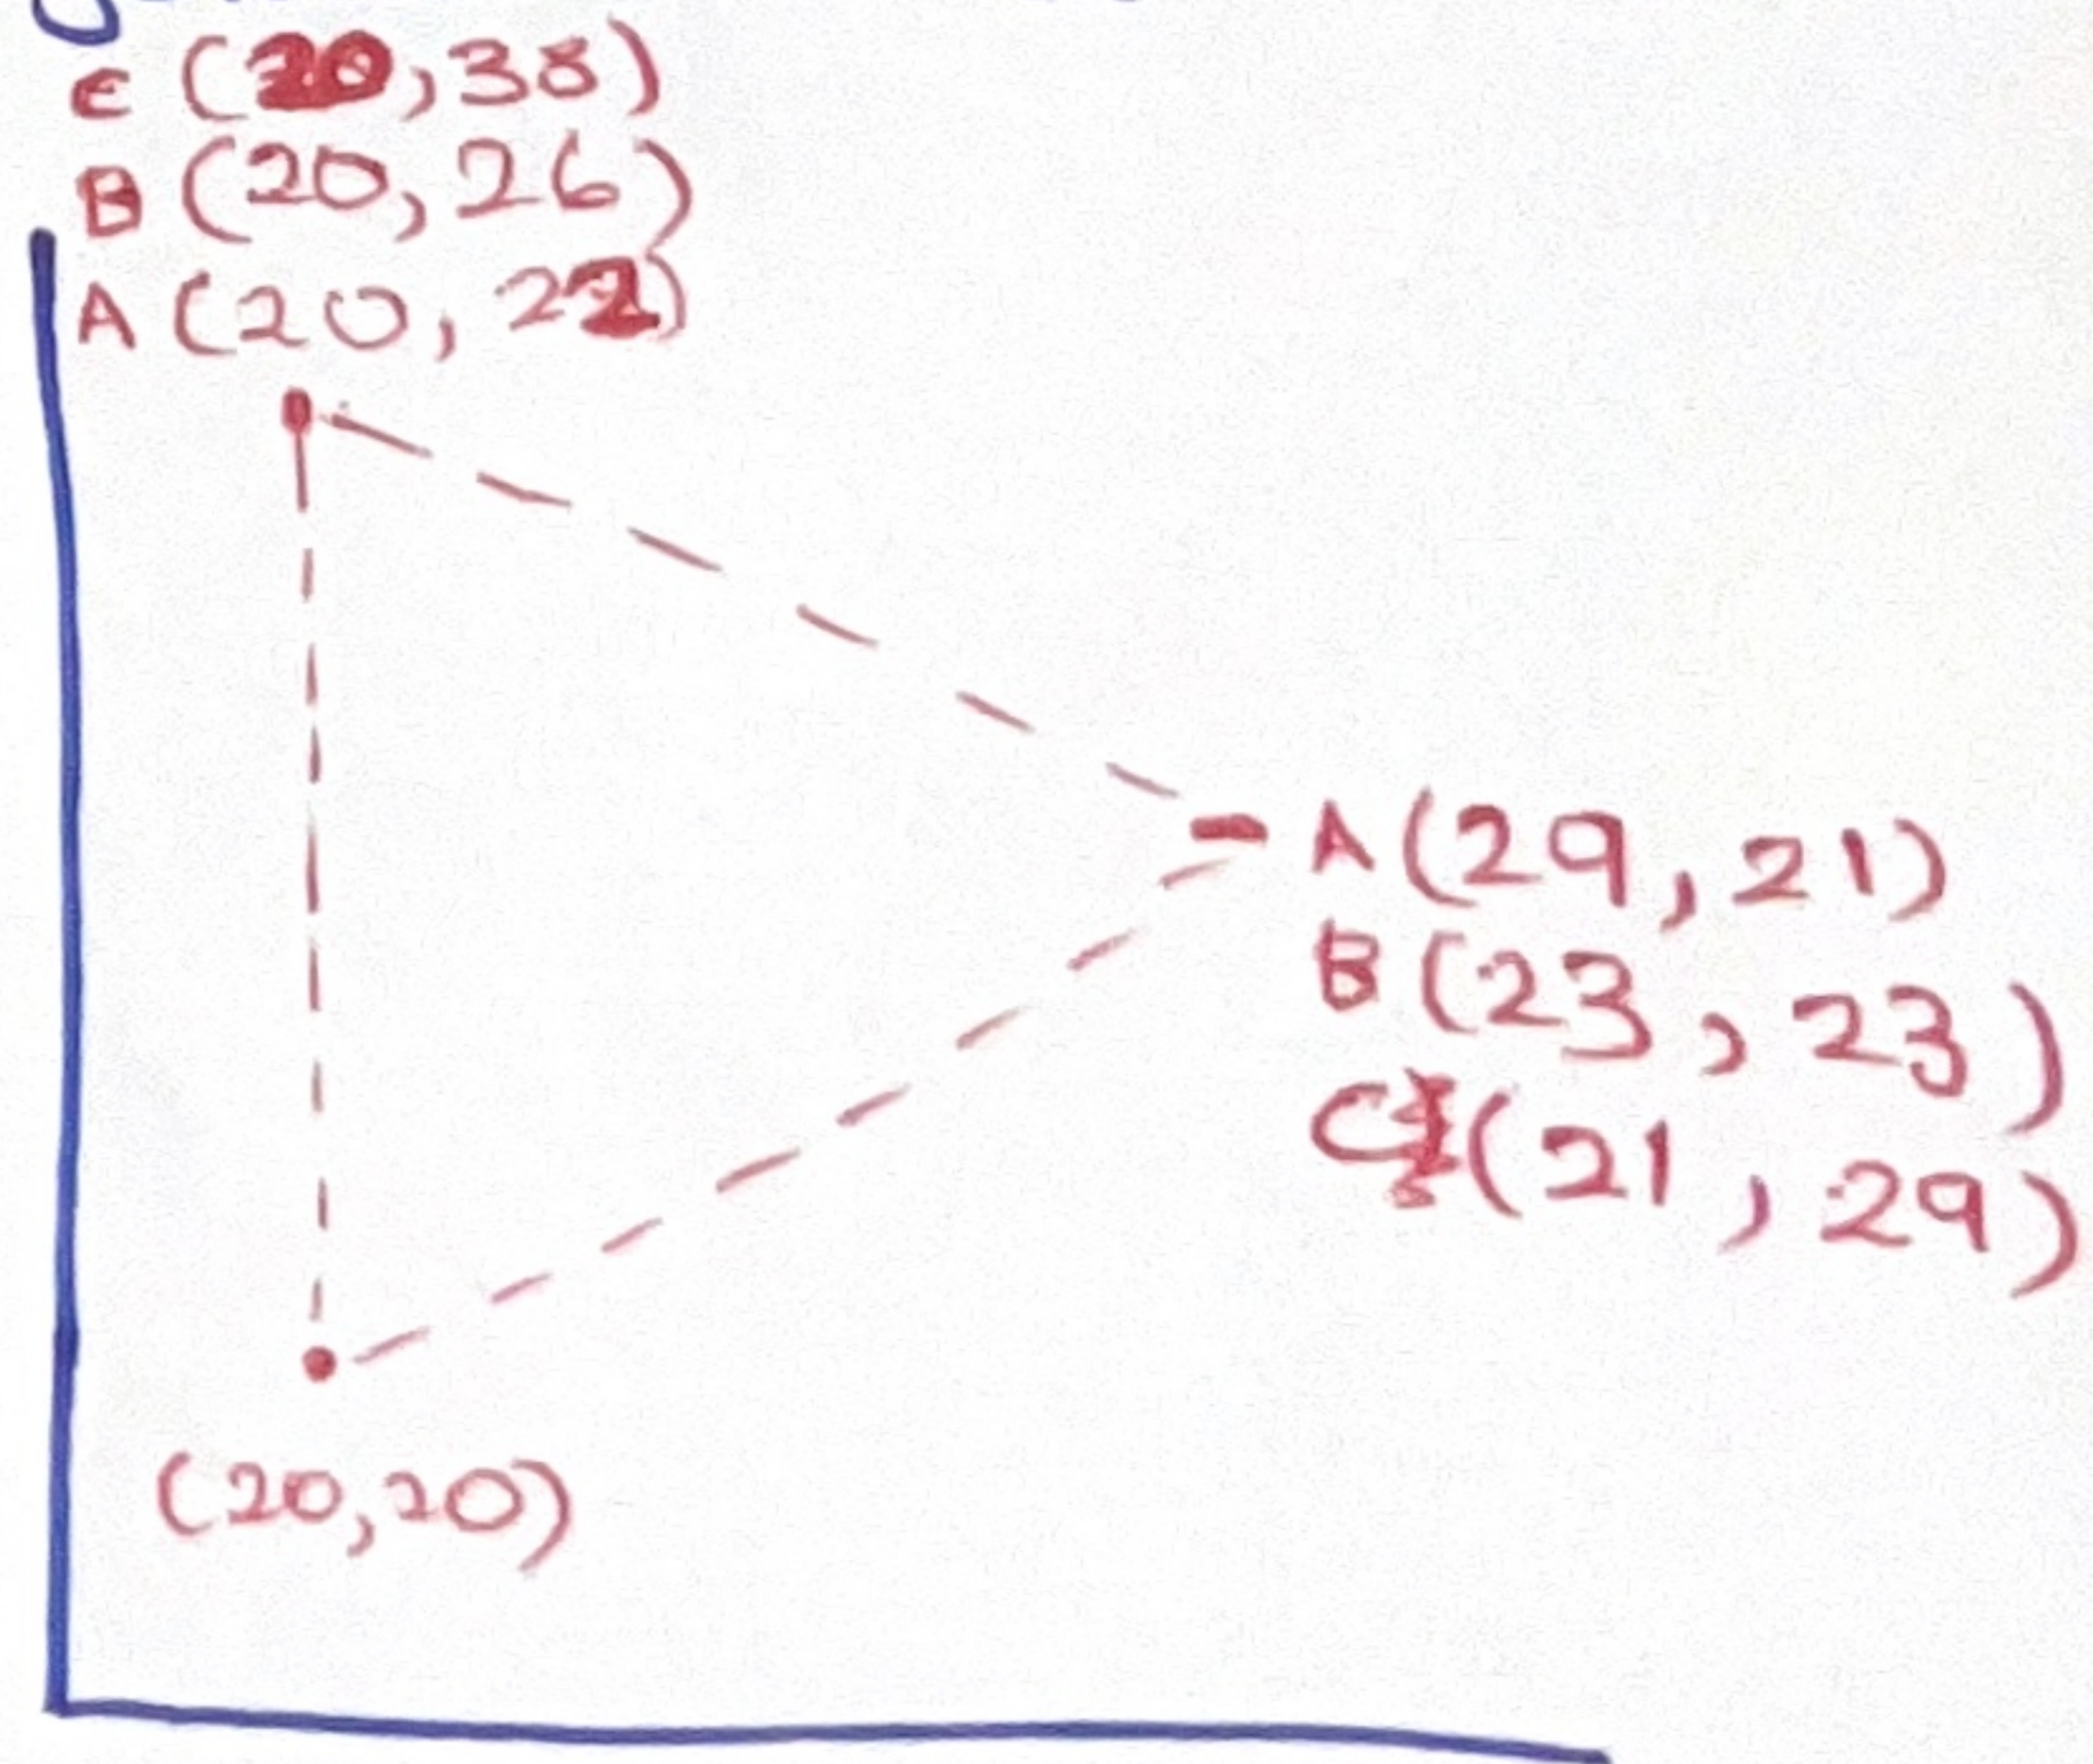 C (20,38)
B (20,26)
A (20,22)
A (29,21)
B (23,23)
C (21,29)
(20,20)